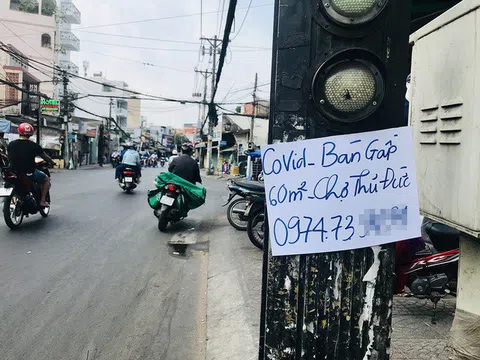 Covid_Bán Gấp
60m²_Chợ Thủ Đức
0974.73